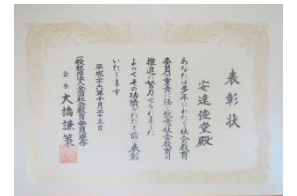 表彰状
安達俊堂殿
あなたは多年にわたり社会教育
委員の重責に携わり社会教育の
推進に努力せられました
よってその功績をたたえ 表彰
いたします
平成二十六年十月二十三日
一般社団法人全国社会教育委員連合
会長 大橋謙策